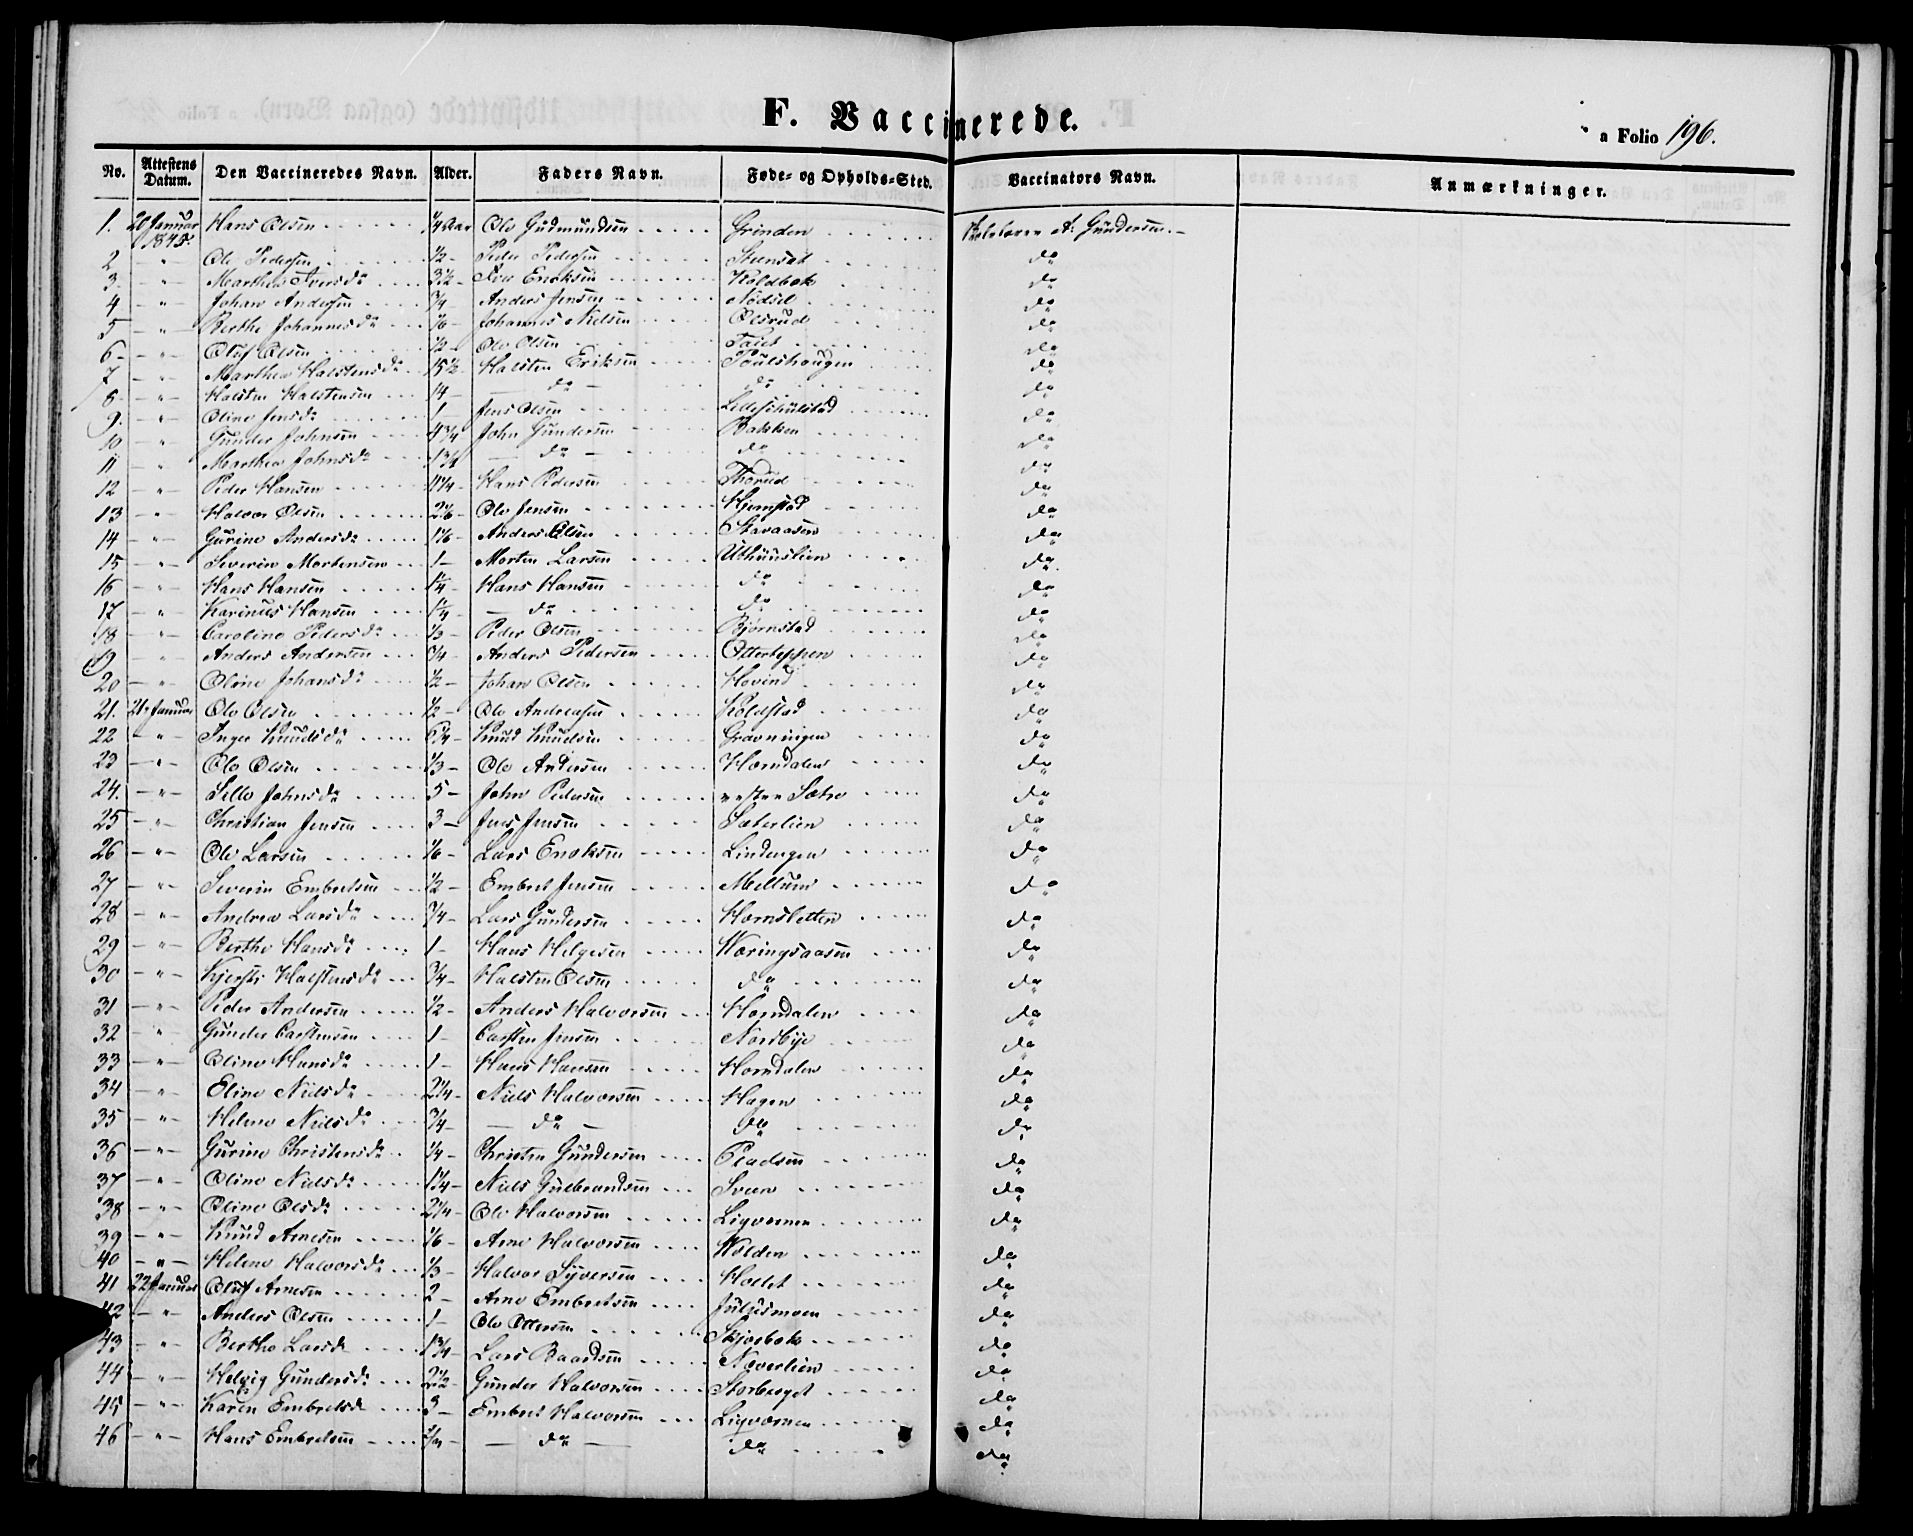 F. Vaccinerede.
a Folio 196.
No. Attestens Datum. Den Vaccineredes Navn. Alder. Faders Navn. Føde- og Opholds-Sted. Vaccinators Navn. Anmærkninger.
1. 20 Januar 1845. Hans Olsen 1/4 Aar Ole Gudmundsen Grinden A. Gundersen
2 - " - Ole Pedersen 1/2 - Peder Pedersen do
3 - " - Marthea Iversdr 3 1/2 - Iver Koldbæk do
4 - " - Johan Andersen 3/4 Anders Jensen do
5 - " - Berthe Johannesdr 1/6 - Johannes Nielsen Olsrud do
6 - " - Oluf Olsen 1/2 - Ole Olsen do
7 - " - Marthea Halstensdr 15 1/2 - Halsten Eriksen Poulshougen do
8 - " - Halsten Halstensen 14 - do - do do
9. - " - Oline Jensdr 1 - Jens Olsen do
10 - " - Gunder Johnsen 4 3/4 John Gundersen Bakken do
11 - " - Marthea Johnsdr 1 3/4 - do - do do
12 - " - Peder Hansen Hans Pedersen Thorud do
13 - " - Halvor Olsen 2 1/6 - Ole Jensen Hjemstad do
14 - " - Gurine Andersdr 1 1/6 - Anders Olsen Stavaasen do
15 - " - Severin Mortensen 1 - Morten Larsen Uthuuslien do
16 - " - Hans Hansen 1 1/4 - Hans Hansen do do
17 - " - Karinus Hansen 1 1/4 - - do do do
18 - " - Caroline Pedersdr 1/3 - Peder Olsen Bjørnstad do
19 - " - Anders Andersen 3/4 - Anders Pedersen Otterteppen do
20 - " - Oline Johansdr 1/2 - Johan Olsen Hovind do
21. 21 Januar Ole Olsen 1/2 - Ole Andreasen Koldstad do
22 - " - Inger Knudsdr 6 1/4 - Knud Knudsen Gravningen do
23 - " - Ole Olsen 1/3 - Ole Andersen Horndalen do
24. - " - Sille Johnsdr 5 - John Pedersen Sætre do
25 - " - Christian Jensen 3 - Jens Jensen Sæterlien do
26 - " - Ole Larsen 1/6 - Lars Lindengen do
27 - " - Severin Embretsen 1/2 - Embret Jensen Mellum do
28 - " - Andrea Larsdr 3/4 - Lars Gundersen Hornsletten do
29 - " - Berthe Hansdr 1 - Hans Helgesen Væringsaasen do
30 - " - Kjersti Halstensdr 3/4 - Halsten Olsen do do
31 - " - Peder Andersen 1/2 - Anders Halvorsen Horndalen do
32 - " - Gunder Carstensen 1 - Carsten Jensen Nordbye do
33 - " - Oline Hansdr 1 - Hans Hansen Horndalen do
34 - " - Eline Nielsdr 2 1/4 - Niels Halvorsen Hagen do
35 - " - Helene Nielsdr 3/4 - - do - do do
36 - " - Gurine Christensdr 1/4 - Christen Gundersen Pladsen do
37 - " - Oline Nielsdr 1 1/4 - Niels Gulbrandsen Sveen do
38 - " - Oline Olsdr 2 1/4 - Ole Halvorsen Ligværnen do
39 - " - Knud Arnesen 1/6 - Arne Halvorsen Volden do
40 - " - Helene Halvorsdr 1/3 - Halvor Syversen Hollet do
41 22 Januar Oluf Arnesen 2 - Arne Embretsen Julusmoen do
42 - " - Anders Olsen 1 - Ole Ottersen Skjærbæk do
43 - " - Berthe Larsdr 1 3/4 - Lars Baardsen Næverlien do
44 - " - Helvig Gundersdr 2 1/2 - Gunder Halvorsen Storberget do
45 - " - Karen Embretsdr 3 - Embret Halvorsen Ligværnen do
46 - " - Hans Embretsen - do - do do